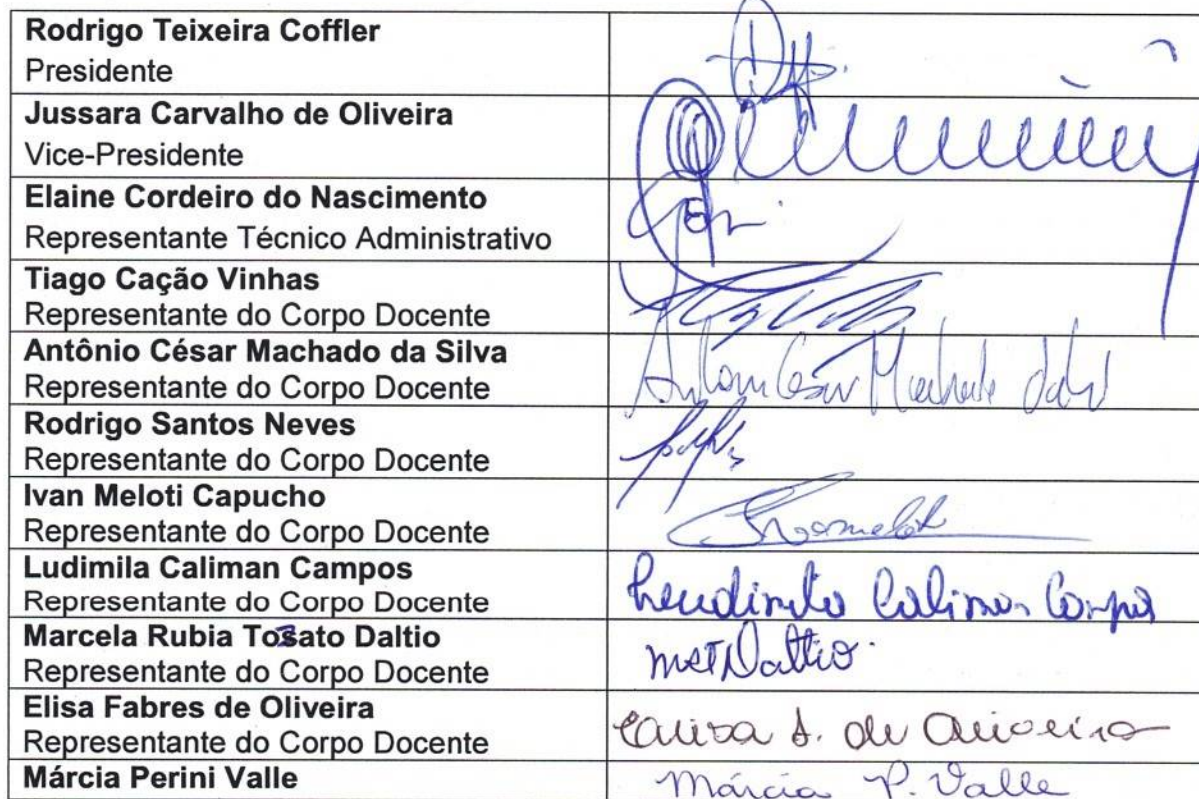 Rodrigo Teixeira Coffler
Presidente
Jussara Carvalho de Oliveira
Vice-Presidente
Elaine Cordeiro do Nascimento
Representante Técnico Administrativo
Tiago Cação Vinhas
Representante do Corpo Docente
Antônio César Machado da Silva
Representante do Corpo Docente
Rodrigo Santos Neves
Representante do Corpo Docente
Ivan Meloti Capucho
Representante do Corpo Docente
Ludimila Caliman Campos
Representante do Corpo Docente
Ludimila Caliman Campos
Marcela Rubia Tozato Daltio
Representante do Corpo Docente
Elisa Fabres de Oliveira
Representante do Corpo Docente
Elisa F. de Oliveira
Márcia Perini Valle
Márcia P. Valle